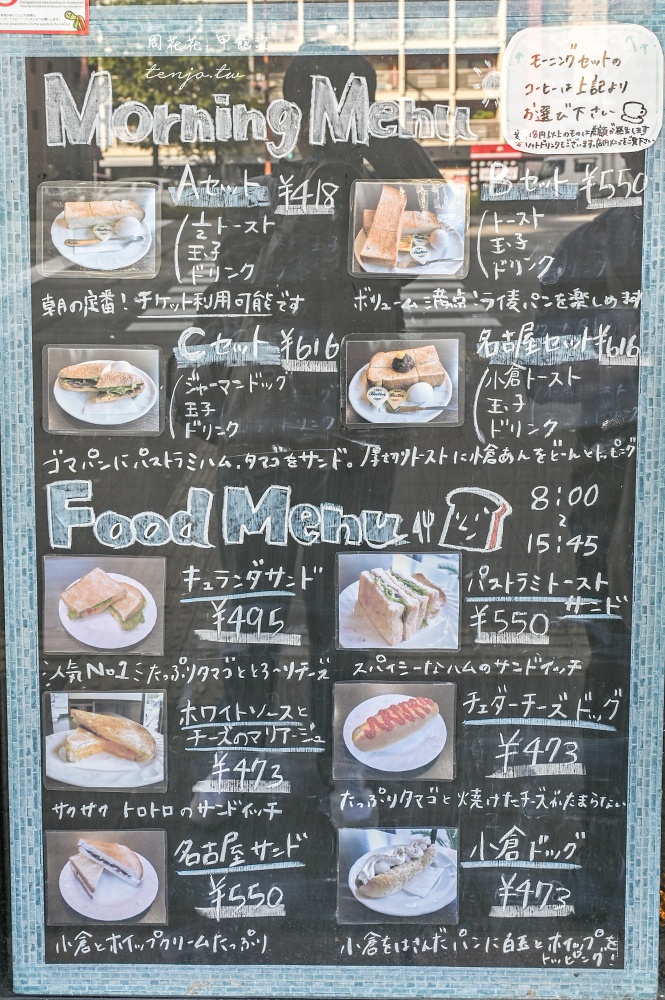 周花花,甲飽沒
tenjo.tw
モーニングセットの
コーヒーは上記より
お選び下さい
Morning Menu
Aセット ¥418
½トースト
玉子
ドリンク
朝の定番!チケット利用可能です
Bセット ¥550
トースト
玉子
ドリンク
ボリューム満点!ライ麦パンを楽しめます
Cセット ¥616
ジャーマンドッグ
玉子
ドリンク
ゴマパンにパストラミハム、タマゴをサンド。
名古屋セット ¥616
小倉トースト
玉子
ドリンク
厚切りトーストに小倉あんをどーんとトッピング
Food Menu
8:00
~
15:45
キュランダサンド
¥495
人気No1!たっぷりタマゴととろ〜りチーズ
パストラミトースト
サンド
¥550
スパイシーなハムのサンドイッチ
ホワイトソースと
チーズのマリアージュ
¥473
サクサク トロトロのサンドイッチ
チェダーチーズドッグ
¥473
たっぷりタマゴと焼けたチーズがたまらない
名古屋サンド
¥550
小倉とホイップクリームたっぷり
小倉ドッグ
¥473
小倉をはさんだパンに白玉とホイップを
トッピング!